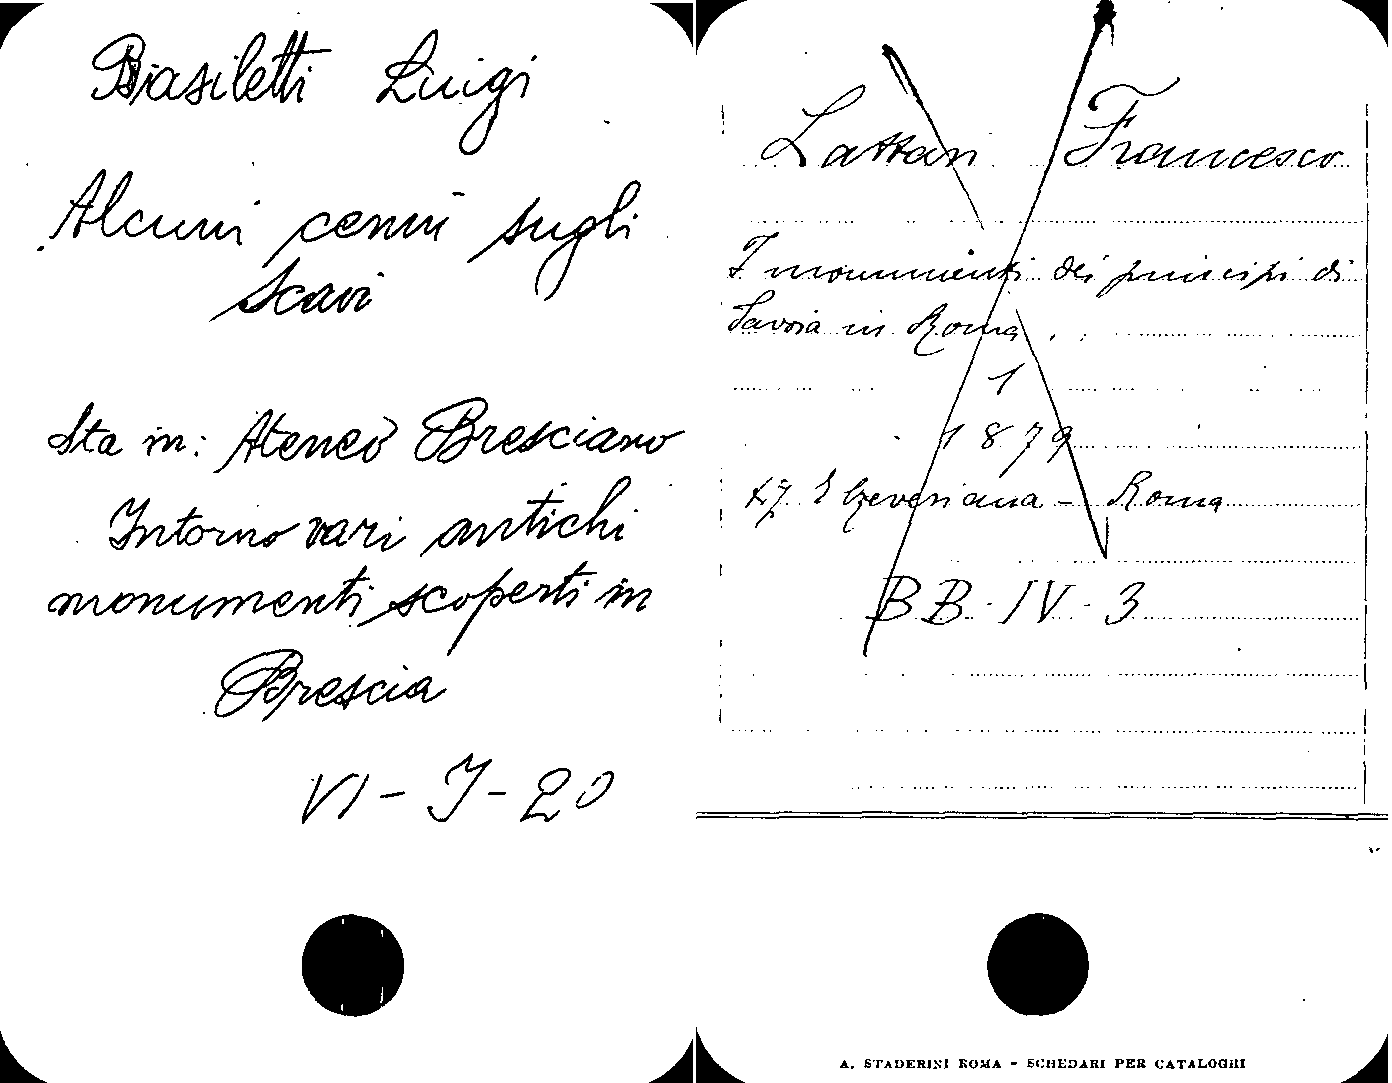 Biasiletti Luigi
Alcuni cenni sugli
scavi
Sta in: Ateneo Bresciano
Intorno vari antichi
monumenti scoperti in
Brescia
VI - I - 20
Lattari Francesco
I monumenti dei principi di
Savoia in Roma . .
1
1879
Elzeveriana - Roma
BB. IV. 3
A. STADERINI ROMA - SCHEDARI PER CATALOGHI